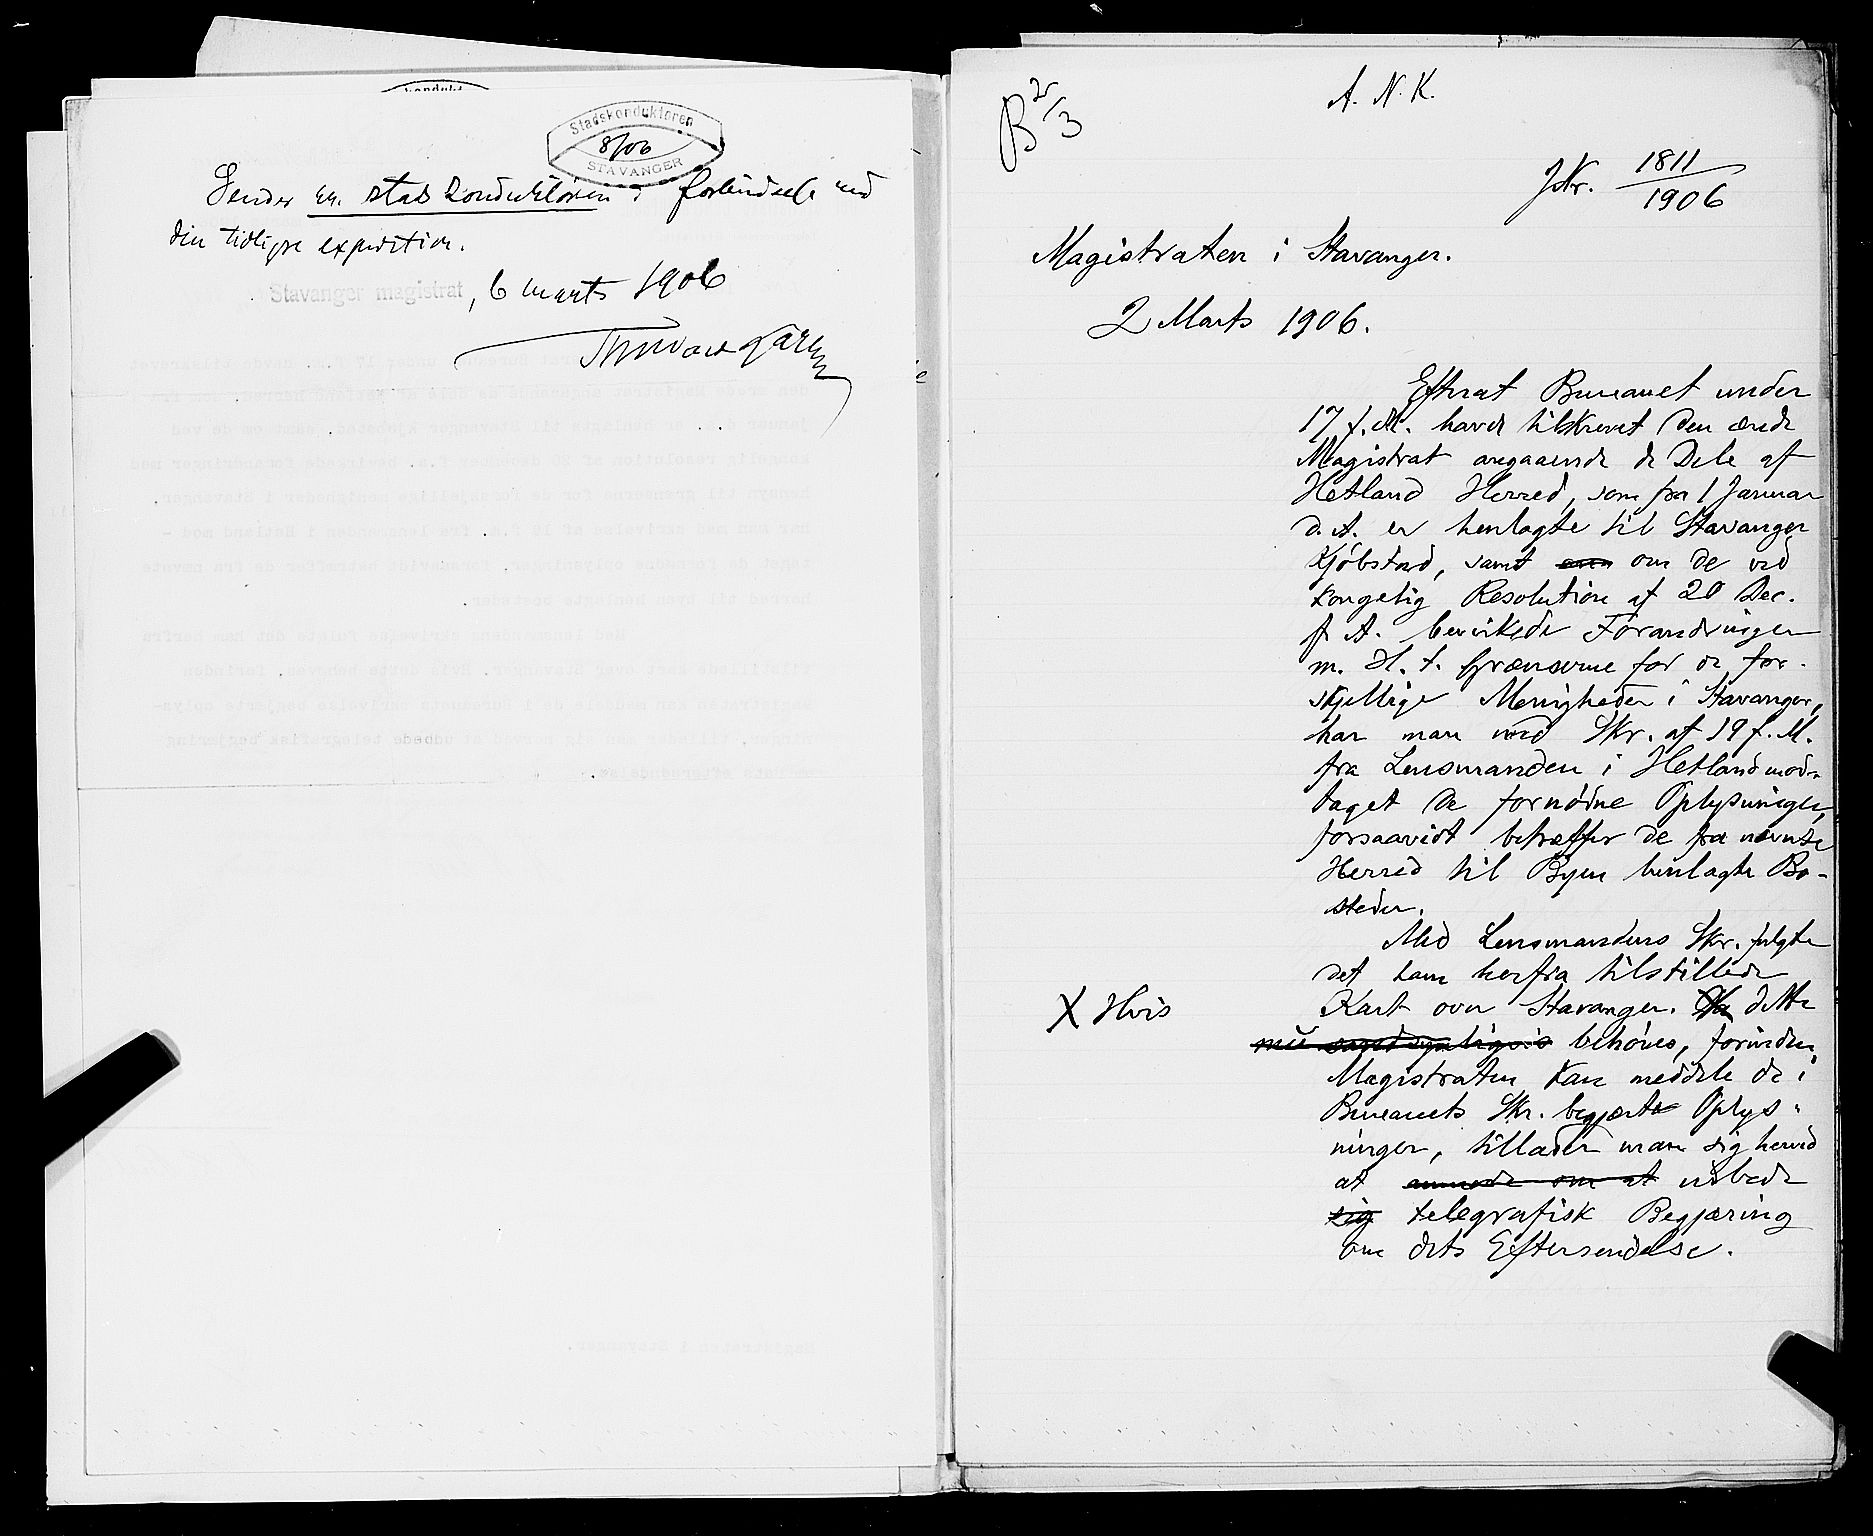 Stadskonduktøren
8/06
STAVANGER
Sendes hr. stadskonduktøren i forbindelse med
din tidligere expedition.
Stavanger magistrat, 6 marts 1906
B 2/3
A. N. K.
Jnr. 1811/1906
Magistraten i Stavanger.
2 Marts 1906.
Efterat Bureauet under
17 f. M. havde tilskrevet den ærede
Magistrat angaaende de Dele af
Hetland Herred, som fra 1 Januar
d. A. er henlagte til Stavanger
Kjøbstad, samt om de ved
kongelig Resolution af 20 Dec.
f. A. bevirkede Forandringer
m. H. t. Grænserne for de for-
skjellige Menigheder i Stavanger,
har man med Skr. af 19 f. M.
fra Lensmanden i Hetland mod-
taget de fornødne Oplysninger,
forsaavidt betræffer de fra nævnte
Herred til Byen henlagte Bo-
steder.
Med Lensmandens Skr. fulgte
det ham herfra tilstillede
X Hvis Kart over Stavanger. dette
sandsynligvis behøves, forinden
Magistraten kan meddele de i
Bureauets Skr. begjærte Oplys-
ninger, tillader man sig herved
at anmode om at udbede
sig telegrafisk Begjæring
om dets Eftersendelse.